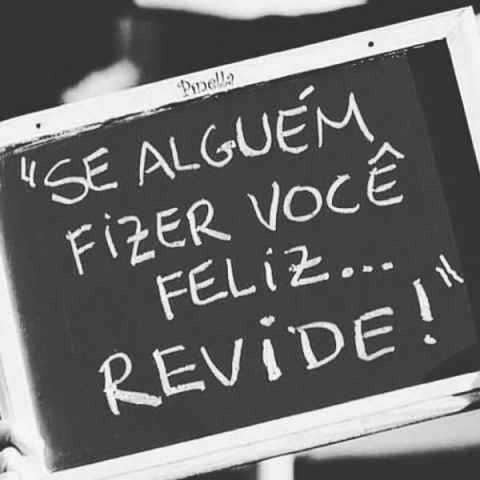 Pinella
"SE ALGUÉM
FIZER VOCÊ
FELIZ...
REVIDE!"